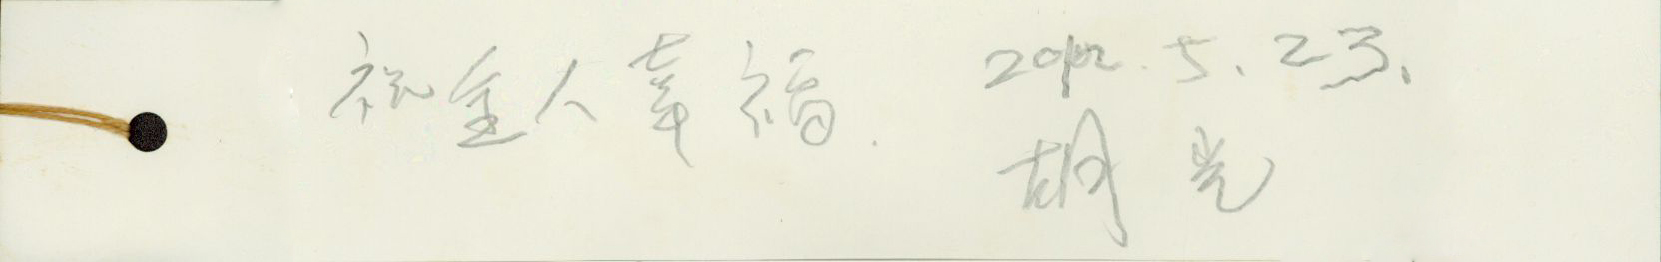 祝全人幸福.
2012.5.23.
胡光